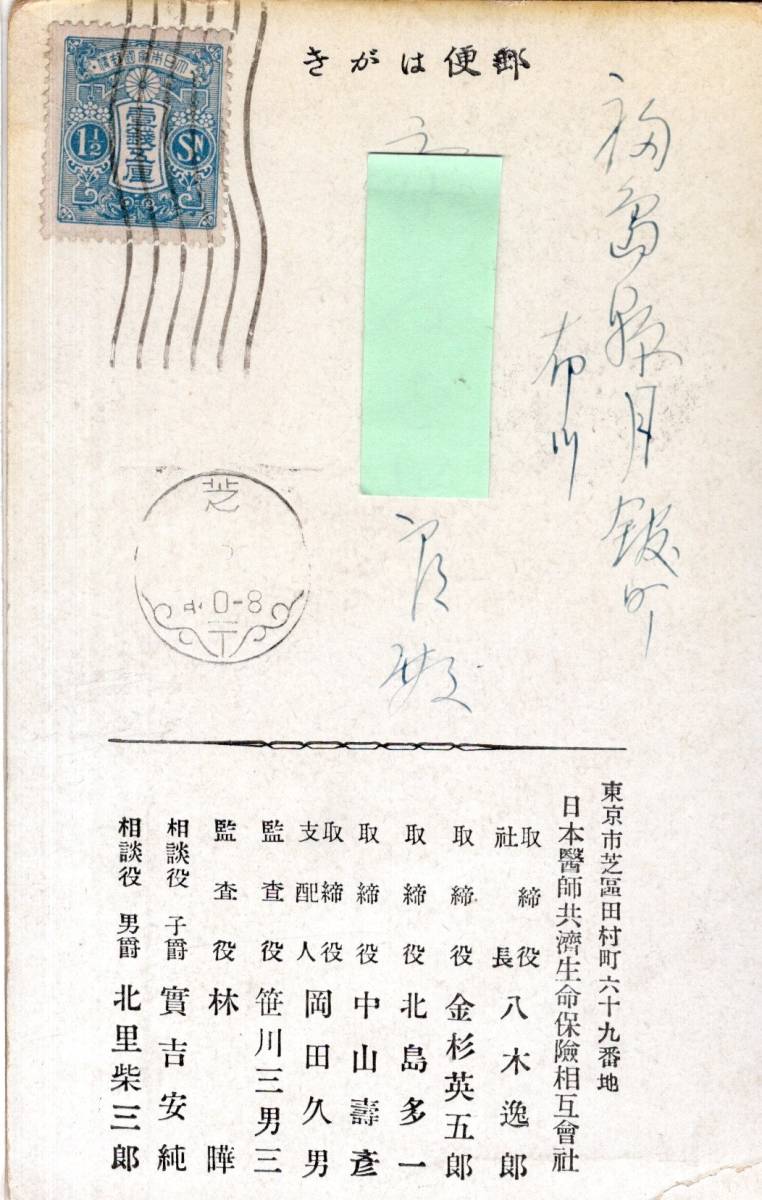 郵便はがき
大日本帝國郵便
壹錢五厘
1½
SN
福島縣月舘町
布川
殿
芝
0-8
東京市芝區田村町六十九番地
日本醫師共濟生命保險相互會社
取締役社長 八木逸郎
取締役 金杉英五郎
取締役 北島多一
取締役 中山壽彥
取締役支配人 岡田久男
監査役 笹川三男三
監査役 林 曄
相談役 子爵 實吉安純
相談役 男爵 北里柴三郎